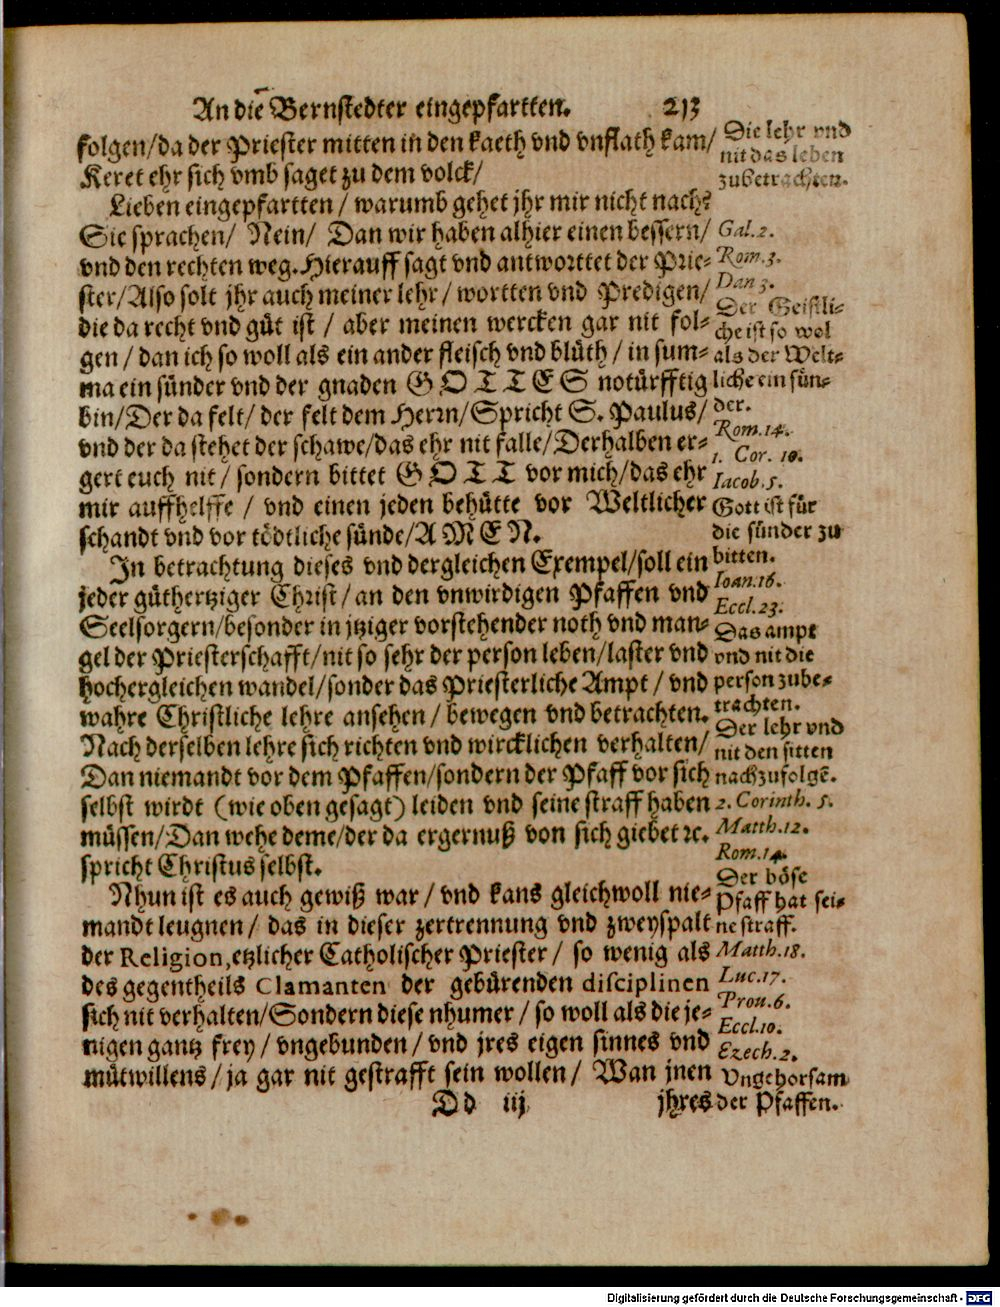 An die Bernstedter eingepfartten. 213
folgen/da der Priester mitten in den kaeth vnd vnflath kam/
Keret ehr sich vmb saget zu dem volck/
Lieben eingepfartten / warumb gehet jhr mir nicht nach?
Sie sprachen/ Nein/ Dan wir haben alhier einen bessern/
vnd den rechten weg. Hierauff sagt vnd antworttet der Prie-
ster/Also solt jhr auch meiner lehr / wortten vnd Predigen/
die da recht vnd gůt ist / aber meinen wercken gar nit fol-
gen / dan ich so woll als ein ander fleisch vnd blůth / in sum-
ma ein sünder vnd der gnaden GOTTES notürfftig
bin/Der da felt/ der felt dem Herrn/Spricht S. Paulus/
vnd der da stehet der schawe/das ehr nit falle/Derhalben er-
gert euch nit / sondern bittet GOTT vor mich/das ehr
mir auffhelffe / vnd einen jeden behütte vor Weltlicher
schandt vnd vor tödtliche sünde/AMEN.
In betrachtung dieses vnd dergleichen Exempel/soll ein
jeder gůthertziger Christ / an den vnwirdigen Pfaffen vnd
Seelsorgern/besonder in jtziger vorstehender noth vnd man-
gel der Priesterschafft/nit so sehr der person leben/laster vnd
hochergleichen wandel/sonder das Priesterliche Ampt / vnd
wahre Christliche lehre ansehen / bewegen vnd betrachten.
Nach derselben lehre sich richten vnd wircklichen verhalten/
Dan niemandt vor dem Pfaffen/sondern der Pfaff vor sich
selbst wirdt (wie oben gesagt) leiden vnd seine straff haben
müssen/Dan wehe deme/der da ergernuß von sich giebet ꝛc.
spricht Christus selbst.
Nhun ist es auch gewiß war / vnd kans gleichwoll nie-
mandt leugnen / das in dieser zertrennung vnd zweyspalt
der Religion, etzlicher Catholischer Priester / so wenig als
des gegentheils Clamanten der gebürenden disciplinen
sich nit verhalten/Sondern diese nhumer / so woll als die je-
nigen gantz frey / vngebunden / vnd jres eigen sinnes vnd
můtwillens / ja gar nit gestrafft sein wollen / Wan jnen
Dd iij jhres
Die lehr vnd
nit das leben
zubetrachten.
Gal.2.
Rom.3.
Dan 3.
Der Geistli-
che ist so wol
als der Welt-
liche ein sün-
der.
Rom.14.
1. Cor. 10.
Iacob.5.
Gott ist für
die sünder zu
bitten.
Ioan.16.
Eccl.23.
Das ampt
vnd nit die
person zube-
trachten.
Der lehr vnd
nit den sitten
nachzufolgē.
2. Corinth. 5.
Matth.12.
Rom.14.
Der böse
Pfaff hat sei-
ne straff.
Matth.18.
Luc.17.
Prou.6.
Eccl.10.
Ezech.2.
Vngehorsam
der Pfaffen.
Digitalisierung gefördert durch die Deutsche Forschungsgemeinschaft - DFG